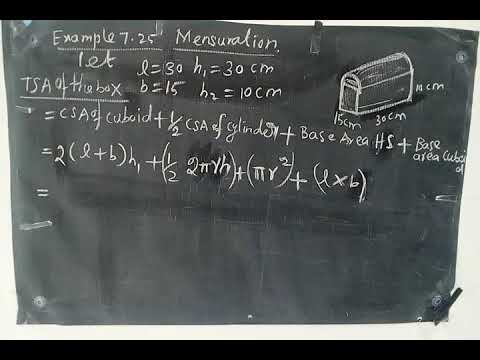 Example 7.25 Mensuration.
let l=30 h₁=30cm
TSA of the box b=15 h₂=10cm
10cm
15cm 30cm
=CSA of cuboid+½ CSA of cylinder+Base Area HS+Base area Cuboid
=2(l+b)h₁+(½ 2πrh)+(πr²)+(l×b)
=